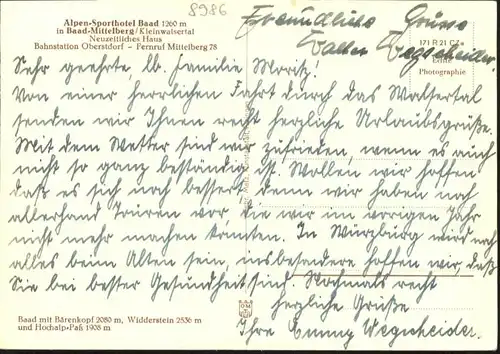 8986
Alpen-Sporthotel Baad 1260 m
in Baad-Mittelberg/Kleinwalsertal
Neuzeitliches Haus
Bahnstation Oberstdorf - Fernruf Mittelberg 78
Freundliche Grüsse
Walter Wegscheider
171 R 21 GZa
Echte
Photographie
Sehr geehrte, lb. Familie Moritz!
Von einer herrlichen Fahrt durch das Walsertal
senden wir Ihnen recht herzliche Urlaubsgrüße.
Mit dem Wetter sind wir zufrieden, wenn es auch
nicht so ganz beständig ist. Wollen wir hoffen
daß es sich noch bessert denn wir haben noch
allerhand Touren vor, die wir im vorigen Jahr
nicht mehr machen konnten. In Würzburg wird noch
alles beim Alten sein, insbesondere hoffen wir, daß
Sie bei bester Gesundheit sind. Nochmals recht
herzliche Grüße
Ihre Emmy Wegscheider.
Baad mit Bärenkopf 2080 m, Widderstein 2536 m
und Hochalp-Paß 1908 m